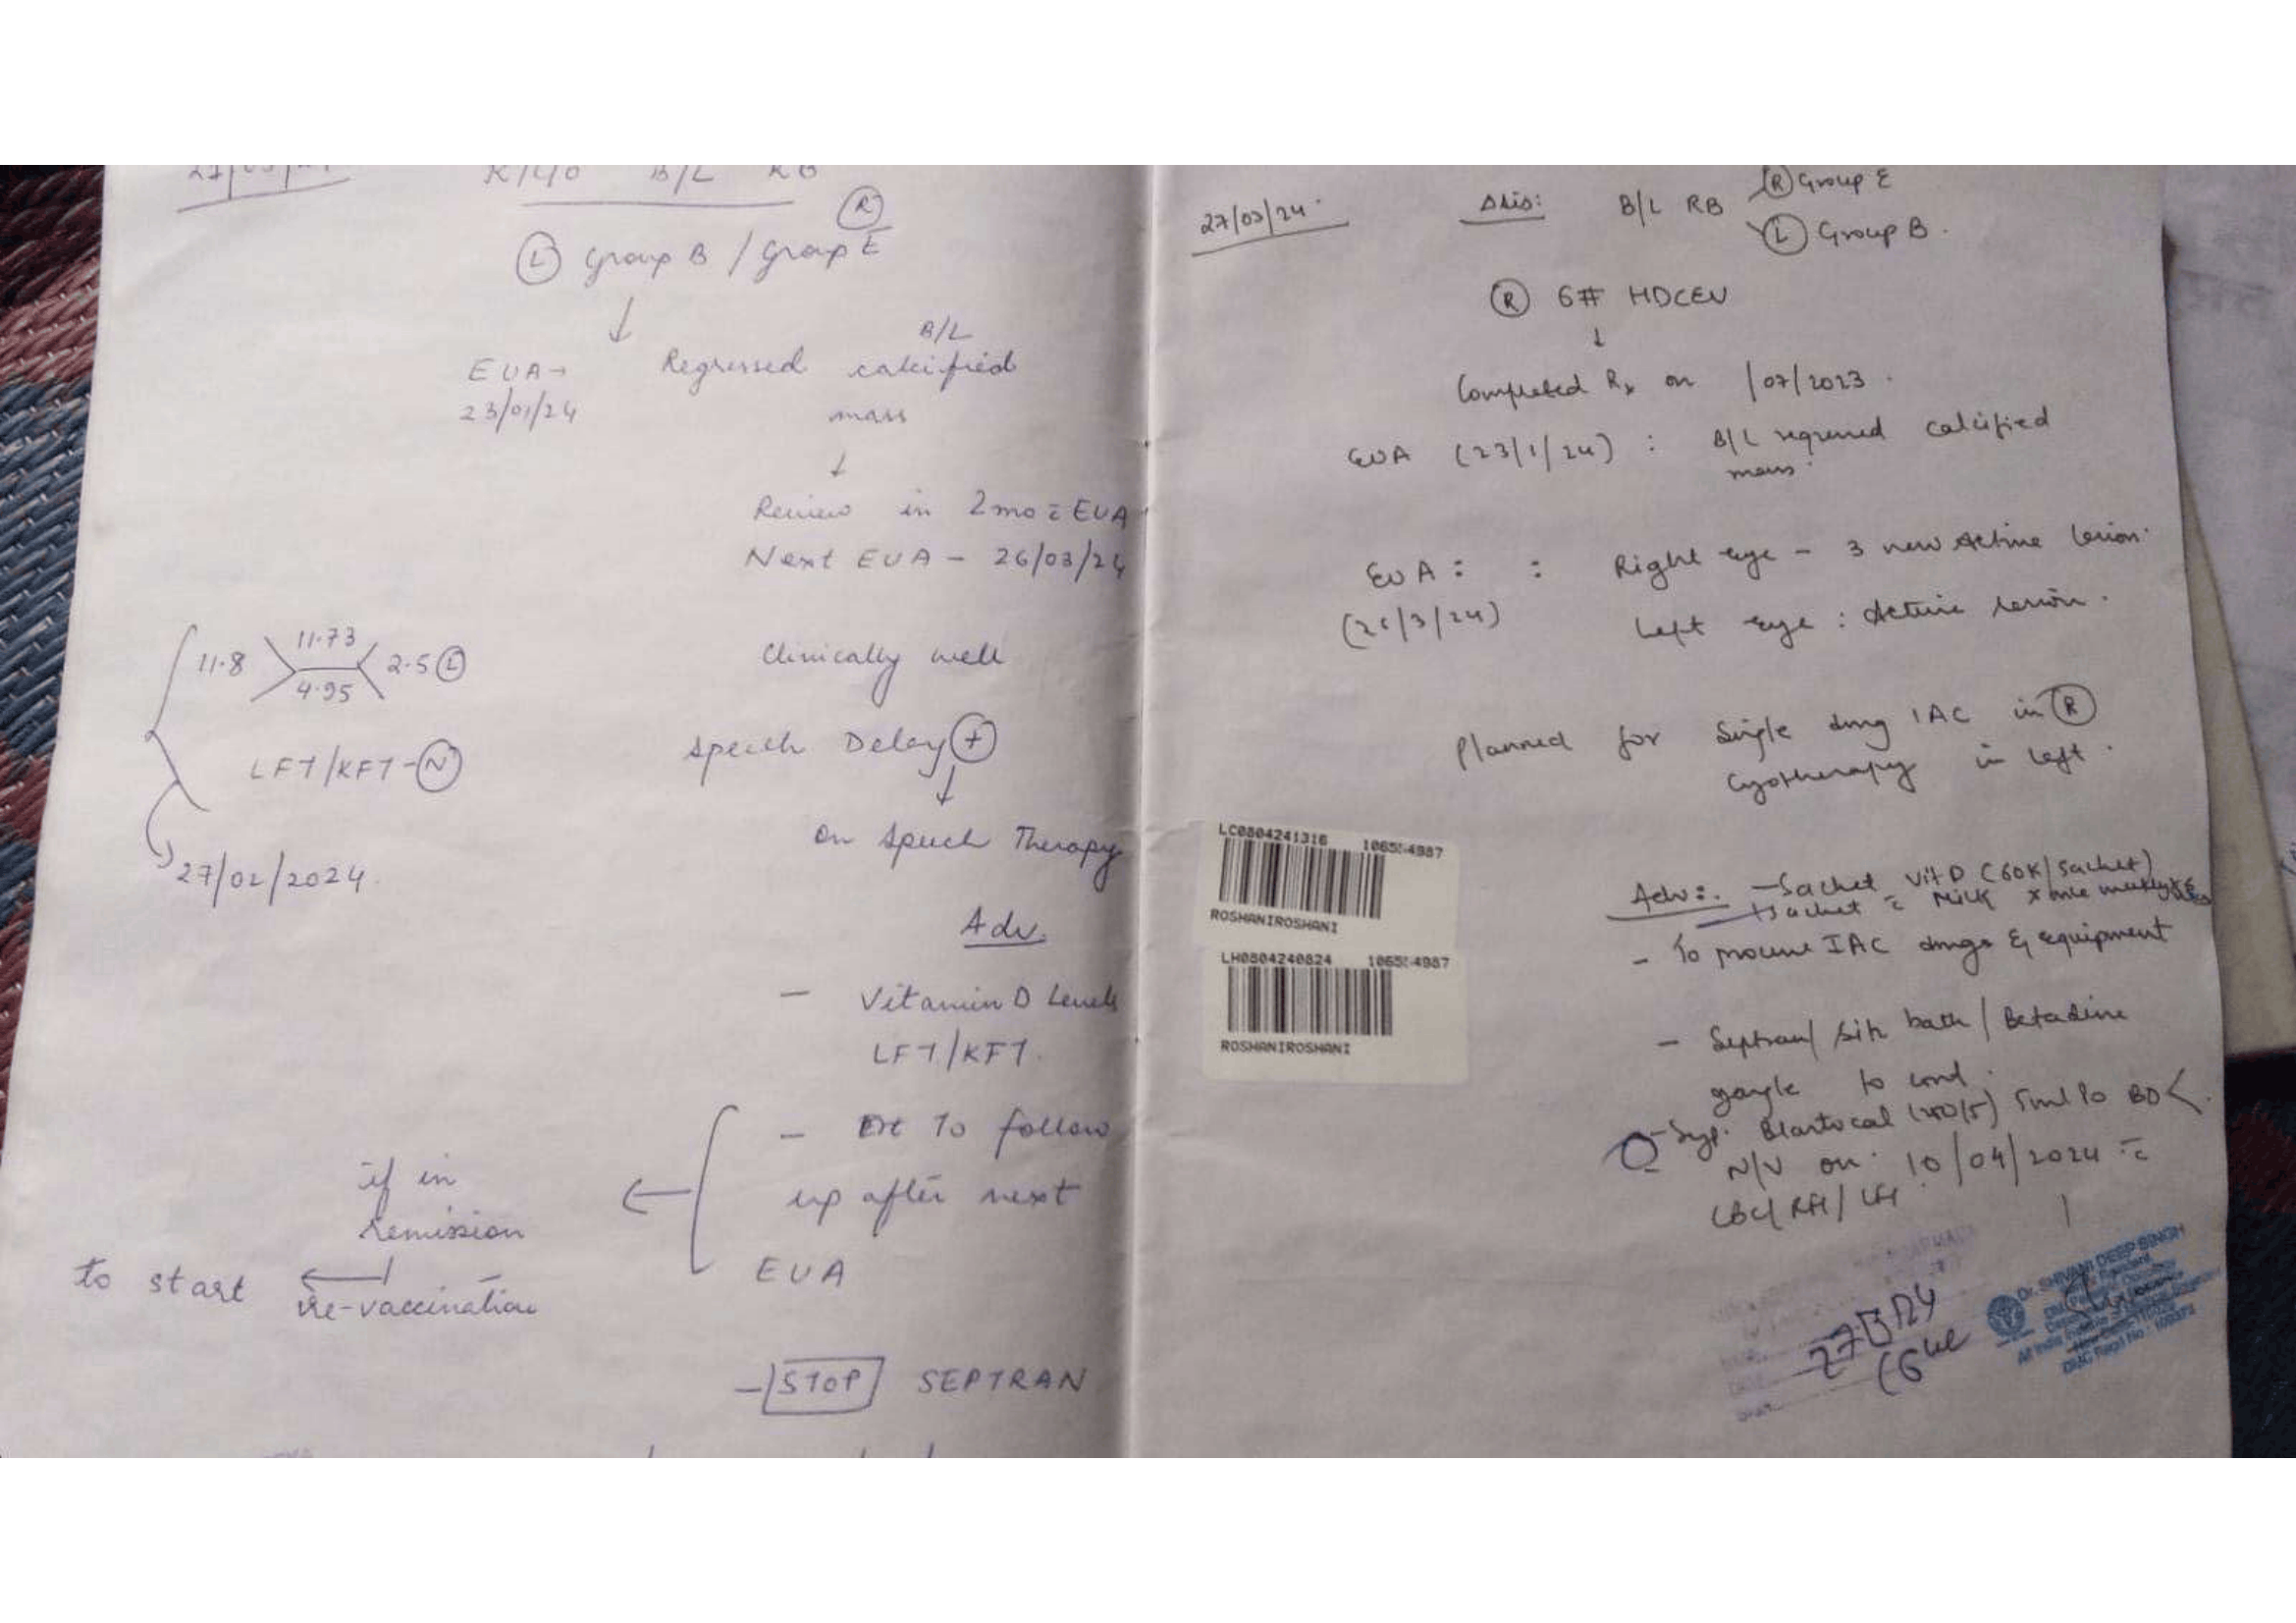 K/C/O B/L RB
(R)
(L) Group B / Group E
EUA → Regressed B/L calcified
23/01/24 mass
Review in 2mo c̄ EUA
Next EUA - 26/03/24
11.8 11.73 2.5 (L)
4.95
Clinically well
LFT/KFT - (N)
Speech Delay (+)
27/02/2024
On Speech Therapy
Adv.
- Vitamin D Levels
LFT/KFT.
- To follow
up after next
EUA
if in
remission
to start
re-vaccination
- STOP SEPTRAN
27/03/24. B/L RB (R) Group E
(L) Group B.
(R) 6# HDCEV
Completed Rx on /07/2023.
EUA (23/1/24) : B/L regressed calcified
mass.
EUA : : Right eye - 3 new Active lesion.
(26/3/24) Left eye : Active lesion.
Planned for Single drug IAC in (R)
Cryotherapy in left.
LC0804241316
ROSHANIROSHANI
LH0804240824
ROSHANIROSHANI
Adv:. - Sachet Vit D (60K/sachet)
1 sachet c̄ Milk x once weekly x
- To procure IAC drugs & equipment
- Septran/ sitz bath / Betadine
gargle to cont.
- Syp. (250/5) 5ml Po BD
N/V on 10/04/2024 c̄
CBC/ RFT/ LFT
Dr. SHIVANI DEEP SINGH